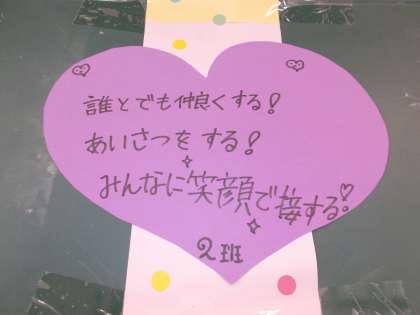 誰とでも仲良くする!
あいさつをする!
みんなに笑顔で接する!
2班